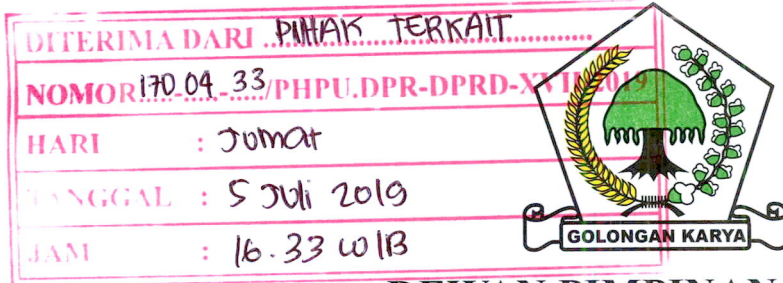 DITERIMA DARI ... PIHAK TERKAIT ...
NOMOR 170.04.33/PHPU.DPR-DPRD-XVII/2019
HARI : Jumat
TANGGAL : 5 Juli 2019
JAM : 16.33 WIB
GOLONGAN KARYA